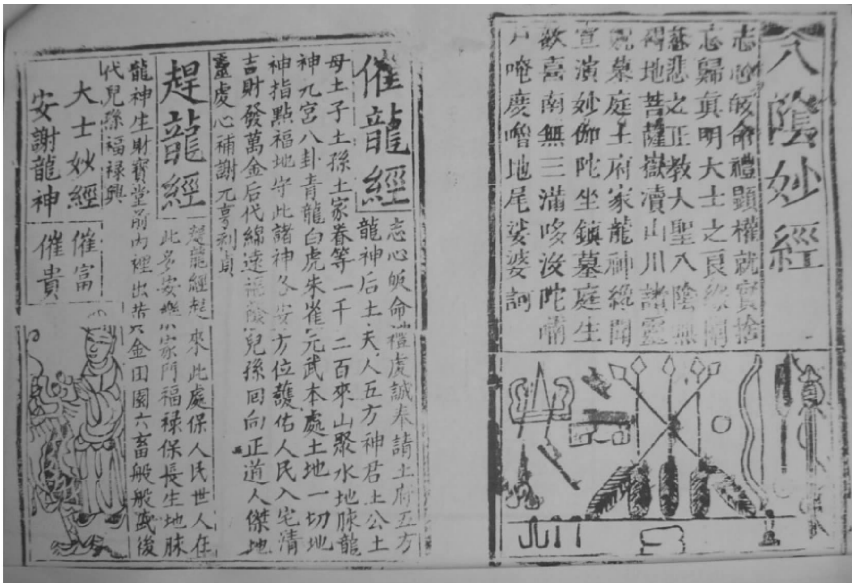 八陰妙經
志心皈命禮顯權就實捨
忘歸真明大士之良緣闡
慈悲之正教大聖八陰無
礙地菩薩嶽瀆山川諸靈
墓庭土府家龍神總聞
宣演妙伽陀坐鎮墓庭生
歡喜南無三滿哆沒陀喃
唵度嚕地尾娑婆訶
催龍經
志心皈命禮虔誠奉請土府五方
龍神后土夫人五方神君土公土
母土子土孫土家眷等一千二百來山聚水地脉龍
神元宮八卦青龍白虎朱雀元武本處土地一切地
神指點福地守此諸神各安方位護佑人民入宅清
吉財發萬金后代綿遠福陰兒孫回向正道人傑地
靈虔心補謝元亨利貞
趕龍經
趕龍經起來此處保人民世人在
此多安樂家門福祿保長生地脉
龍神生財寶堂前內裡出黃金田園六畜般般盛後
代兒孫福祿興
大士妙經
安謝龍神
催富
催貴